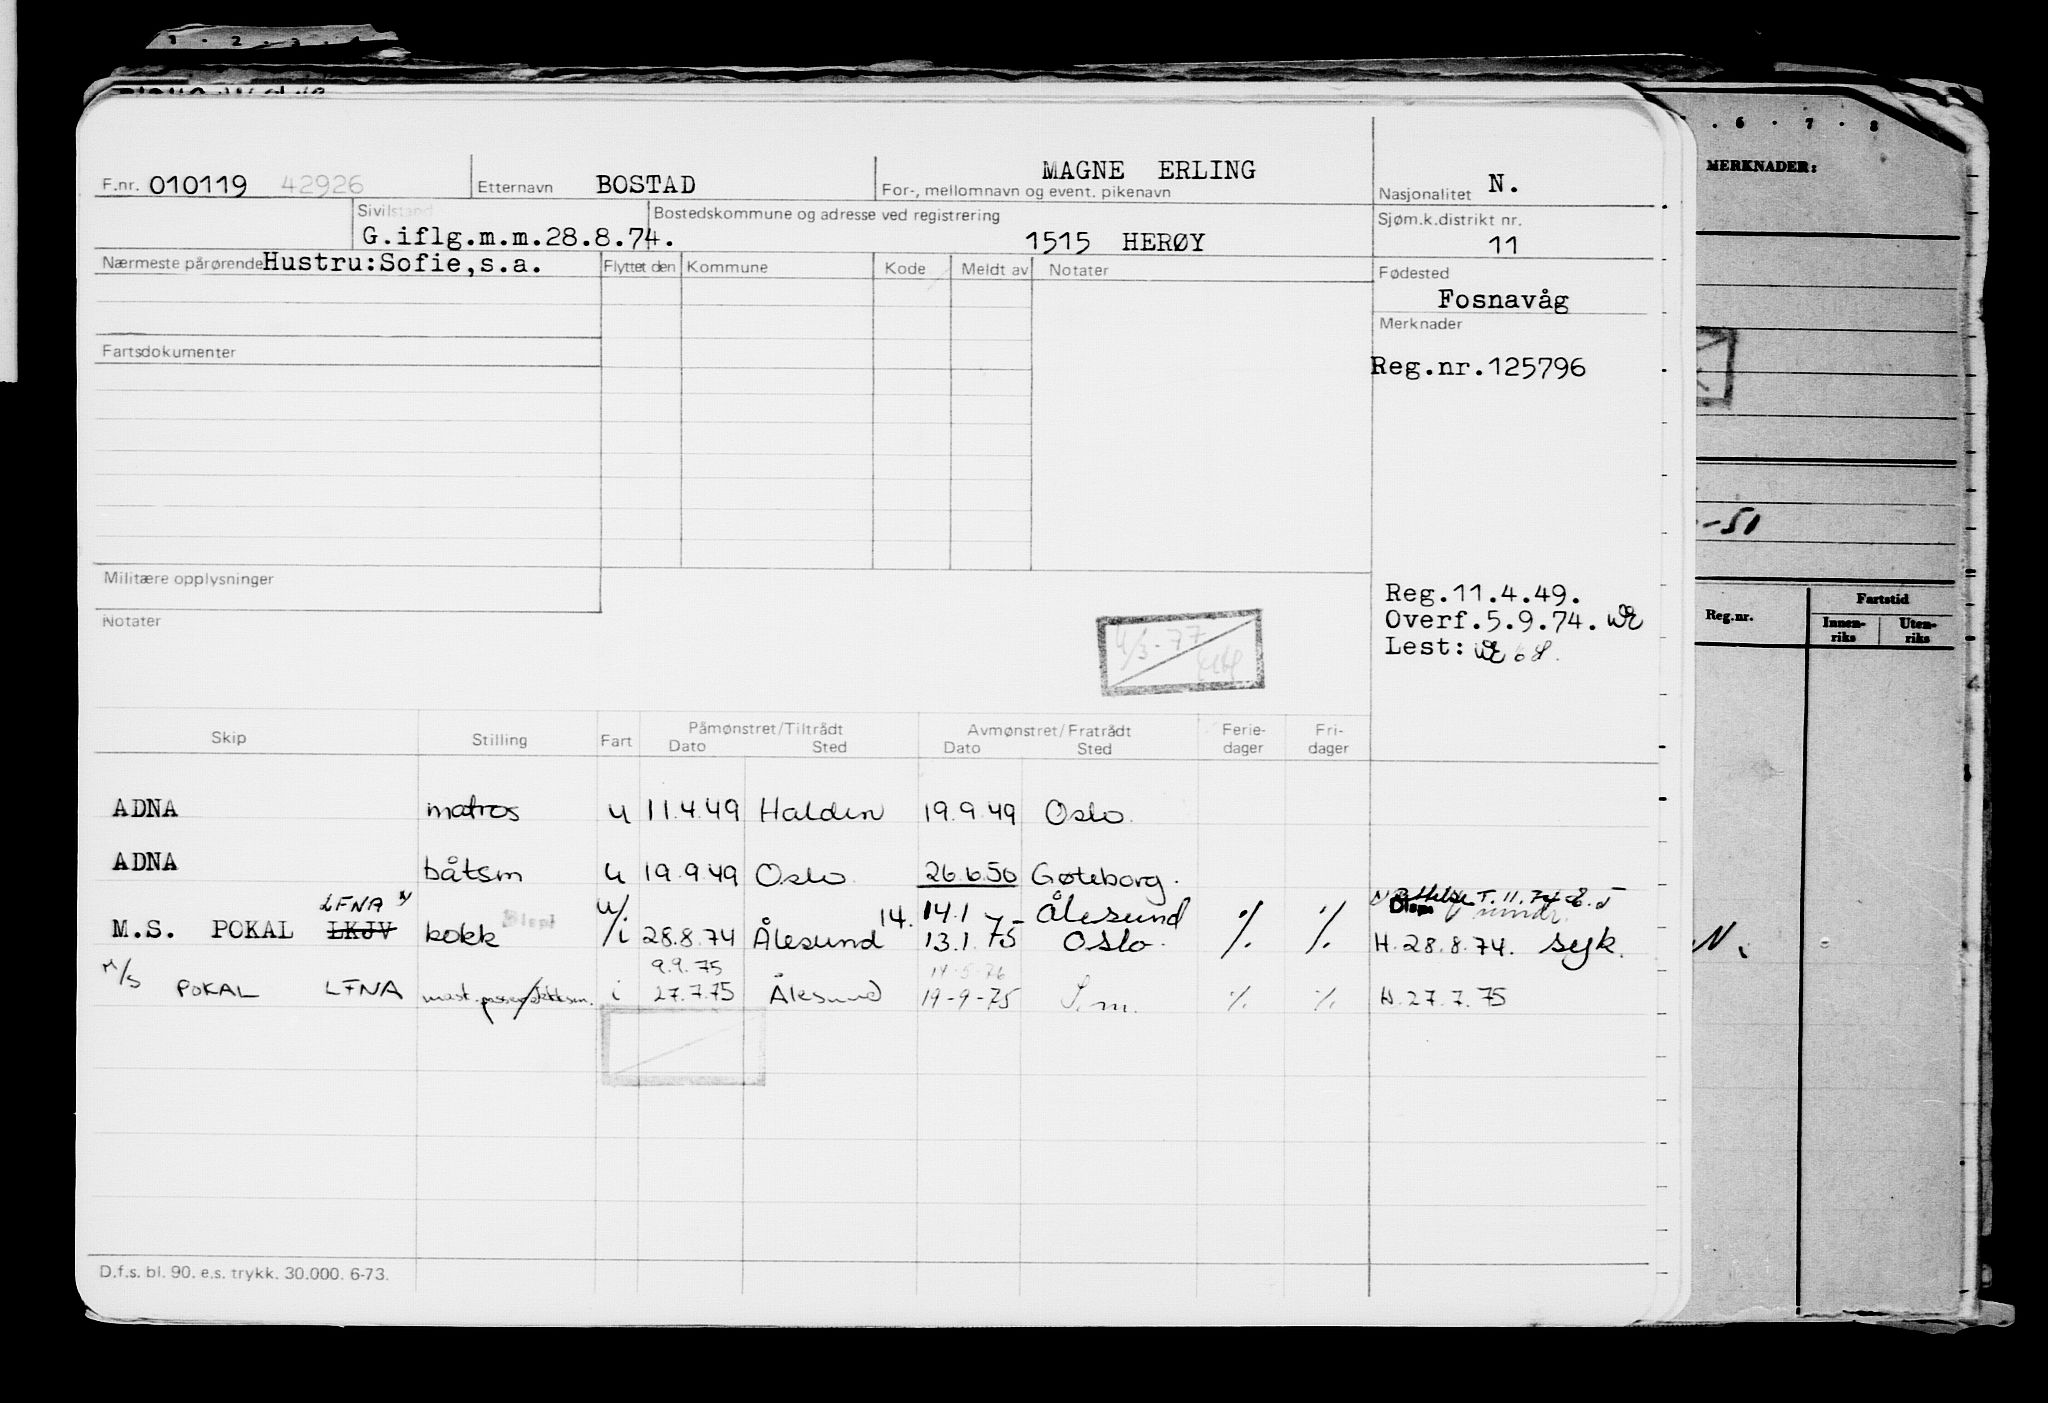 MAGNE ERLING
F.nr. 010119 42926 Etternavn BOSTAD For-, mellomnavn og event. pikenavn Nasjonalitet N.
Sivilstand Bostedskommune og adresse ved registrering Sjøm.k.distrikt nr.
G.iflg.m.m.28.8.74. 1515 HERØY 11
Nærmeste pårørende Hustru:Sofie,s.a. Flyttet den Kommune Kode Meldt av Notater Fødested
Fosnavåg
Merknader
Fartsdokumenter
Reg.nr.125796
Militære opplysninger
Reg.11.4.49.
Notater Overf.5.9.74.
4/3-77
Lest:
Skip Stilling Fart Påmønstret/Tiltrådt Avmønstret/Fratrådt Ferie- Fri-
Dato Sted Dato Sted dager dager
ADNA matros u 11.4.49 Halden 19.9.49 Oslo.
ADNA båtsm u 19.9.49 Oslo 26.6.50 Gøteborg.
LFNA u/ 14. 14.1 Ålesund T. 11.74
M.S. POKAL LKJV kokk /i 28.8.74 Ålesund 13.1.75 Oslo. ./. ./. H.28.8.74. syk.
9.9.75 14-5-76
M/S POKAL LFNA i 27.7.75 Ålesund 19-9-75 S.m. ./. ./. H.27.7.75
D.f.s. bl. 90. e.s. trykk. 30.000. 6-73.
1 · 2 · 3 · 4
· 6 · 7 · 8
MERKNADER:
-51
Reg.nr. Fartstid
Innen-riks Uten-riks
N.